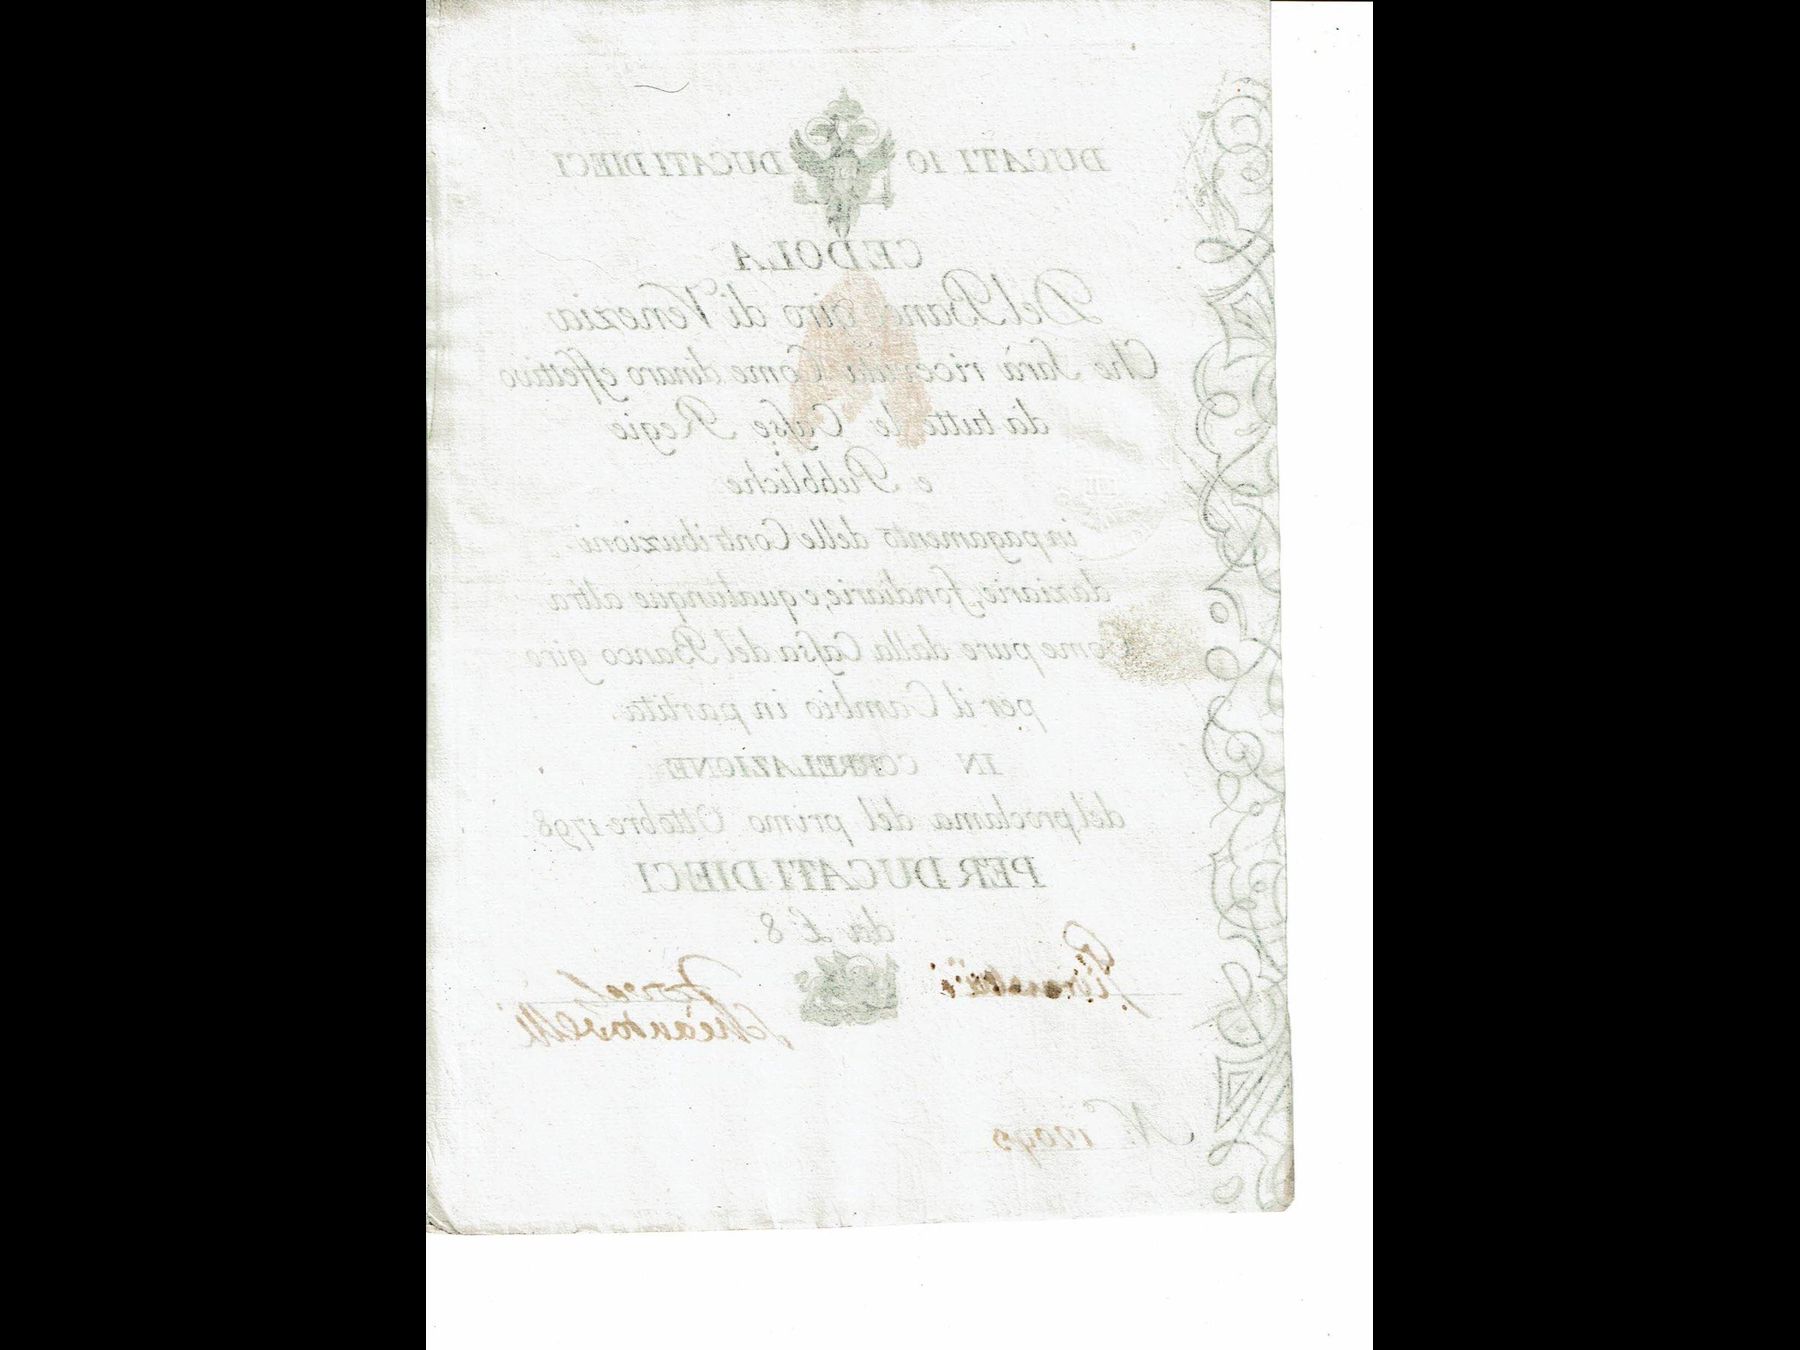 DUCATI 10 DUCATI DIECI
CEDOLA
Del Banco giro di Venezia
Che Sarà ricevuta Come dinaro effettivo
da tutte le Casse Regie
e Pubbliche
in pagamento delle Contribuzioni
daziarie, fondiarie, e qualunque altra
Come pure dalla Cassa del Banco giro
per il Cambio in partita.
IN CORRELAZIONE
del proclama del primo Ottobre 1798
PER DUCATI DIECI
da £ 8.
N.